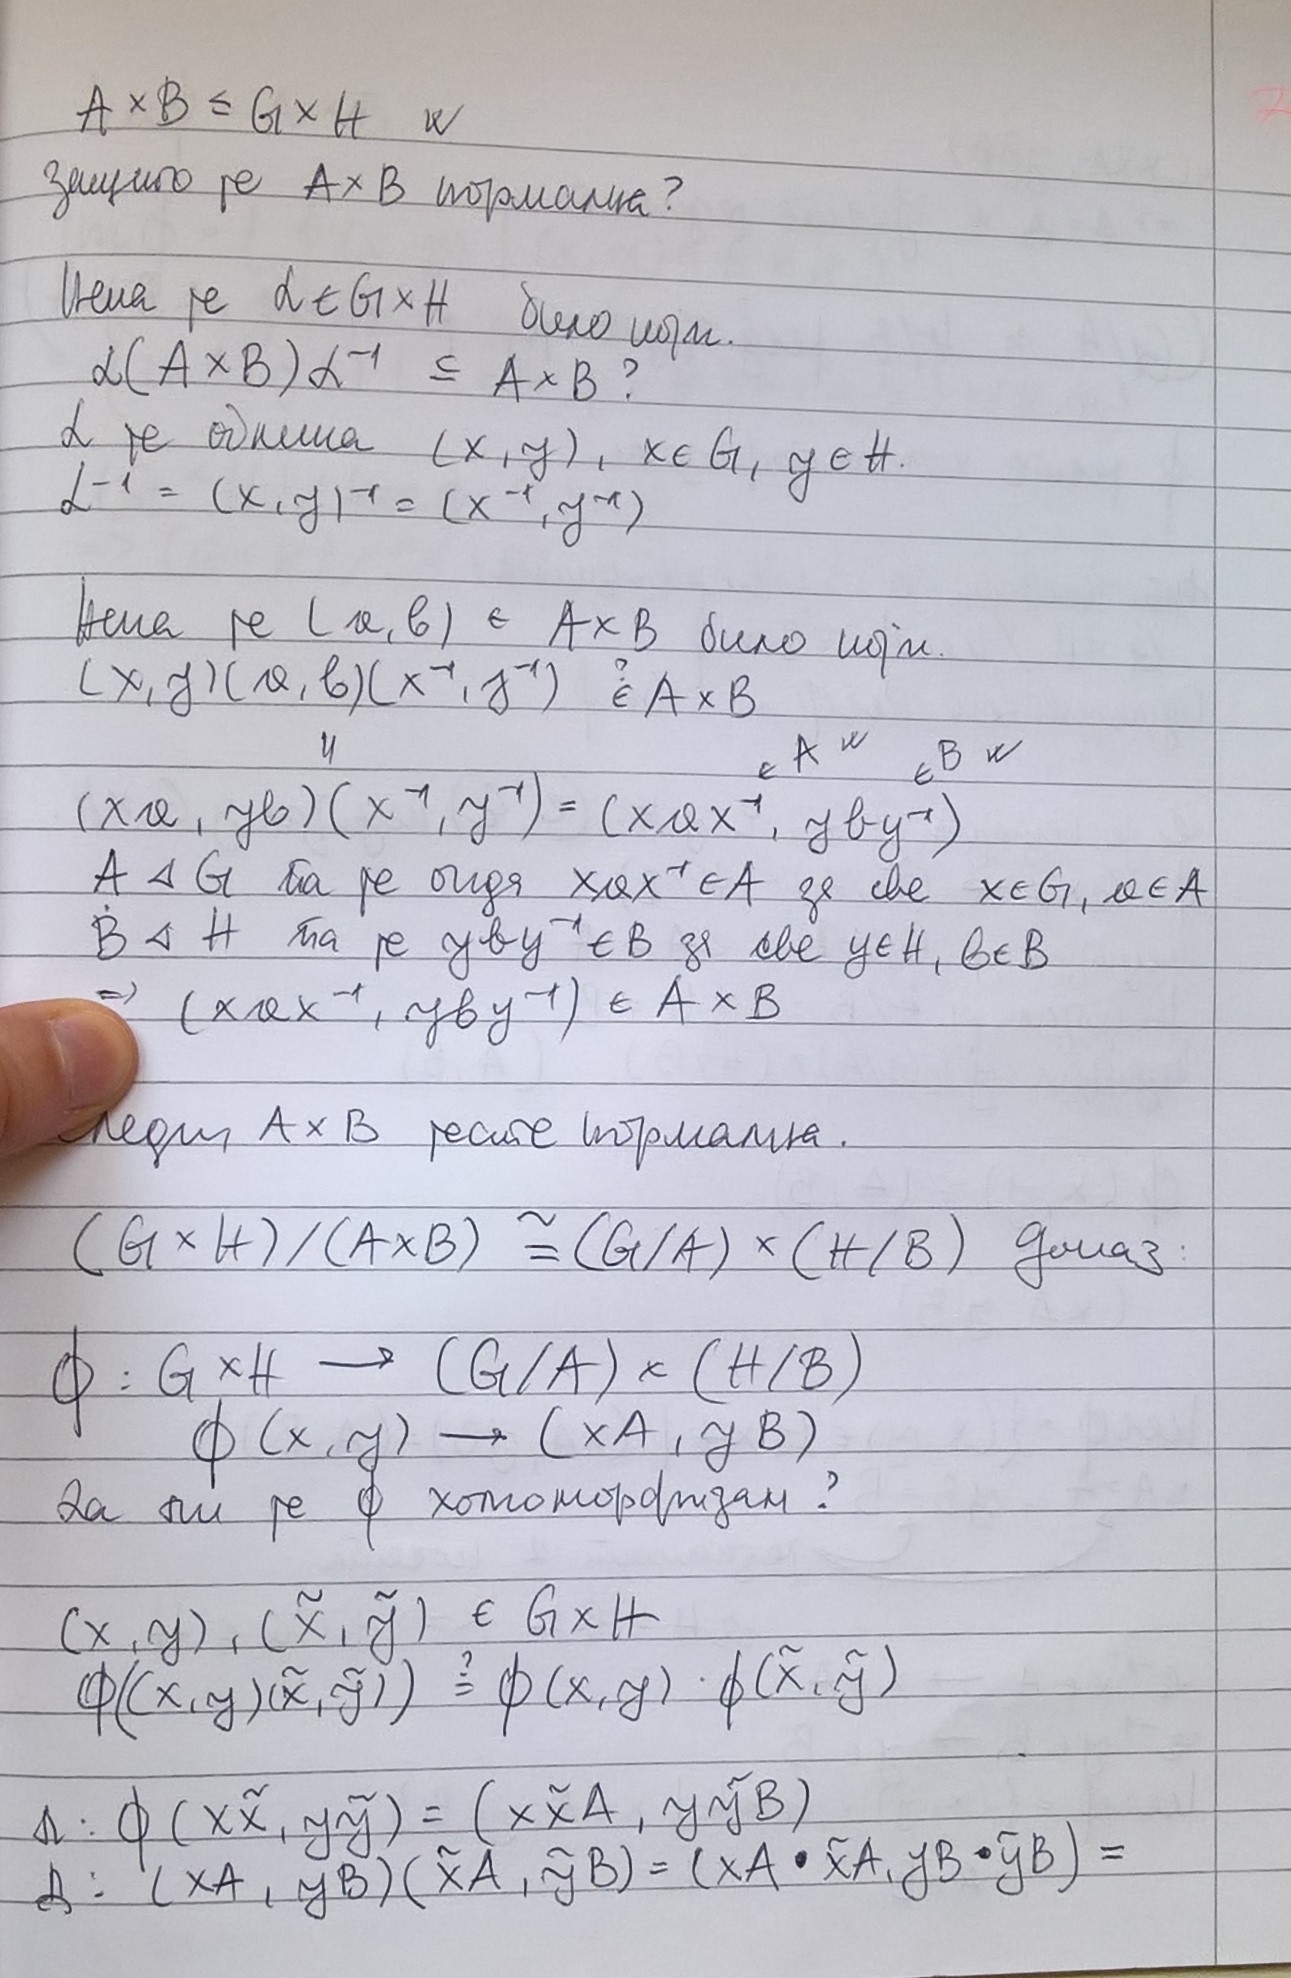 A × B ≤ G × H ✓
Зашто је A × B нормална?
Нека је α ∈ G × H било који.
α(A × B)α⁻¹ ⊆ A × B?
α је облика (x, y), x ∈ G, y ∈ H.
α⁻¹ = (x, y)⁻¹ = (x⁻¹, y⁻¹)
Нека је (a, b) ∈ A × B било који.
(x, y)(a, b)(x⁻¹, y⁻¹) ∈? A × B
∈ A ✓ ∈ B ✓
(xa, yb)(x⁻¹, y⁻¹) = (xax⁻¹, yby⁻¹)
A ⊲ G па је онда xax⁻¹ ∈ A за све x ∈ G, a ∈ A
B ⊲ H па је yby⁻¹ ∈ B за све y ∈ H, b ∈ B
⇒ (xax⁻¹, yby⁻¹) ∈ A × B
следи, A × B јесте нормална.
(G × H)/(A × B) ≅ (G/A) × (H/B) доказ:
ϕ : G × H → (G/A) × (H/B)
ϕ(x, y) → (xA, yB)
Да ли је ϕ хомоморфизам?
(x, y), (x̃, ỹ) ∈ G × H
ϕ((x, y)(x̃, ỹ)) =? ϕ(x, y) · ϕ(x̃, ỹ)
Л: ϕ(xx̃, yỹ) = (xx̃A, yỹB)
Д: (xA, yB)(x̃A, ỹB) = (xA • x̃A, yB • ỹB) =